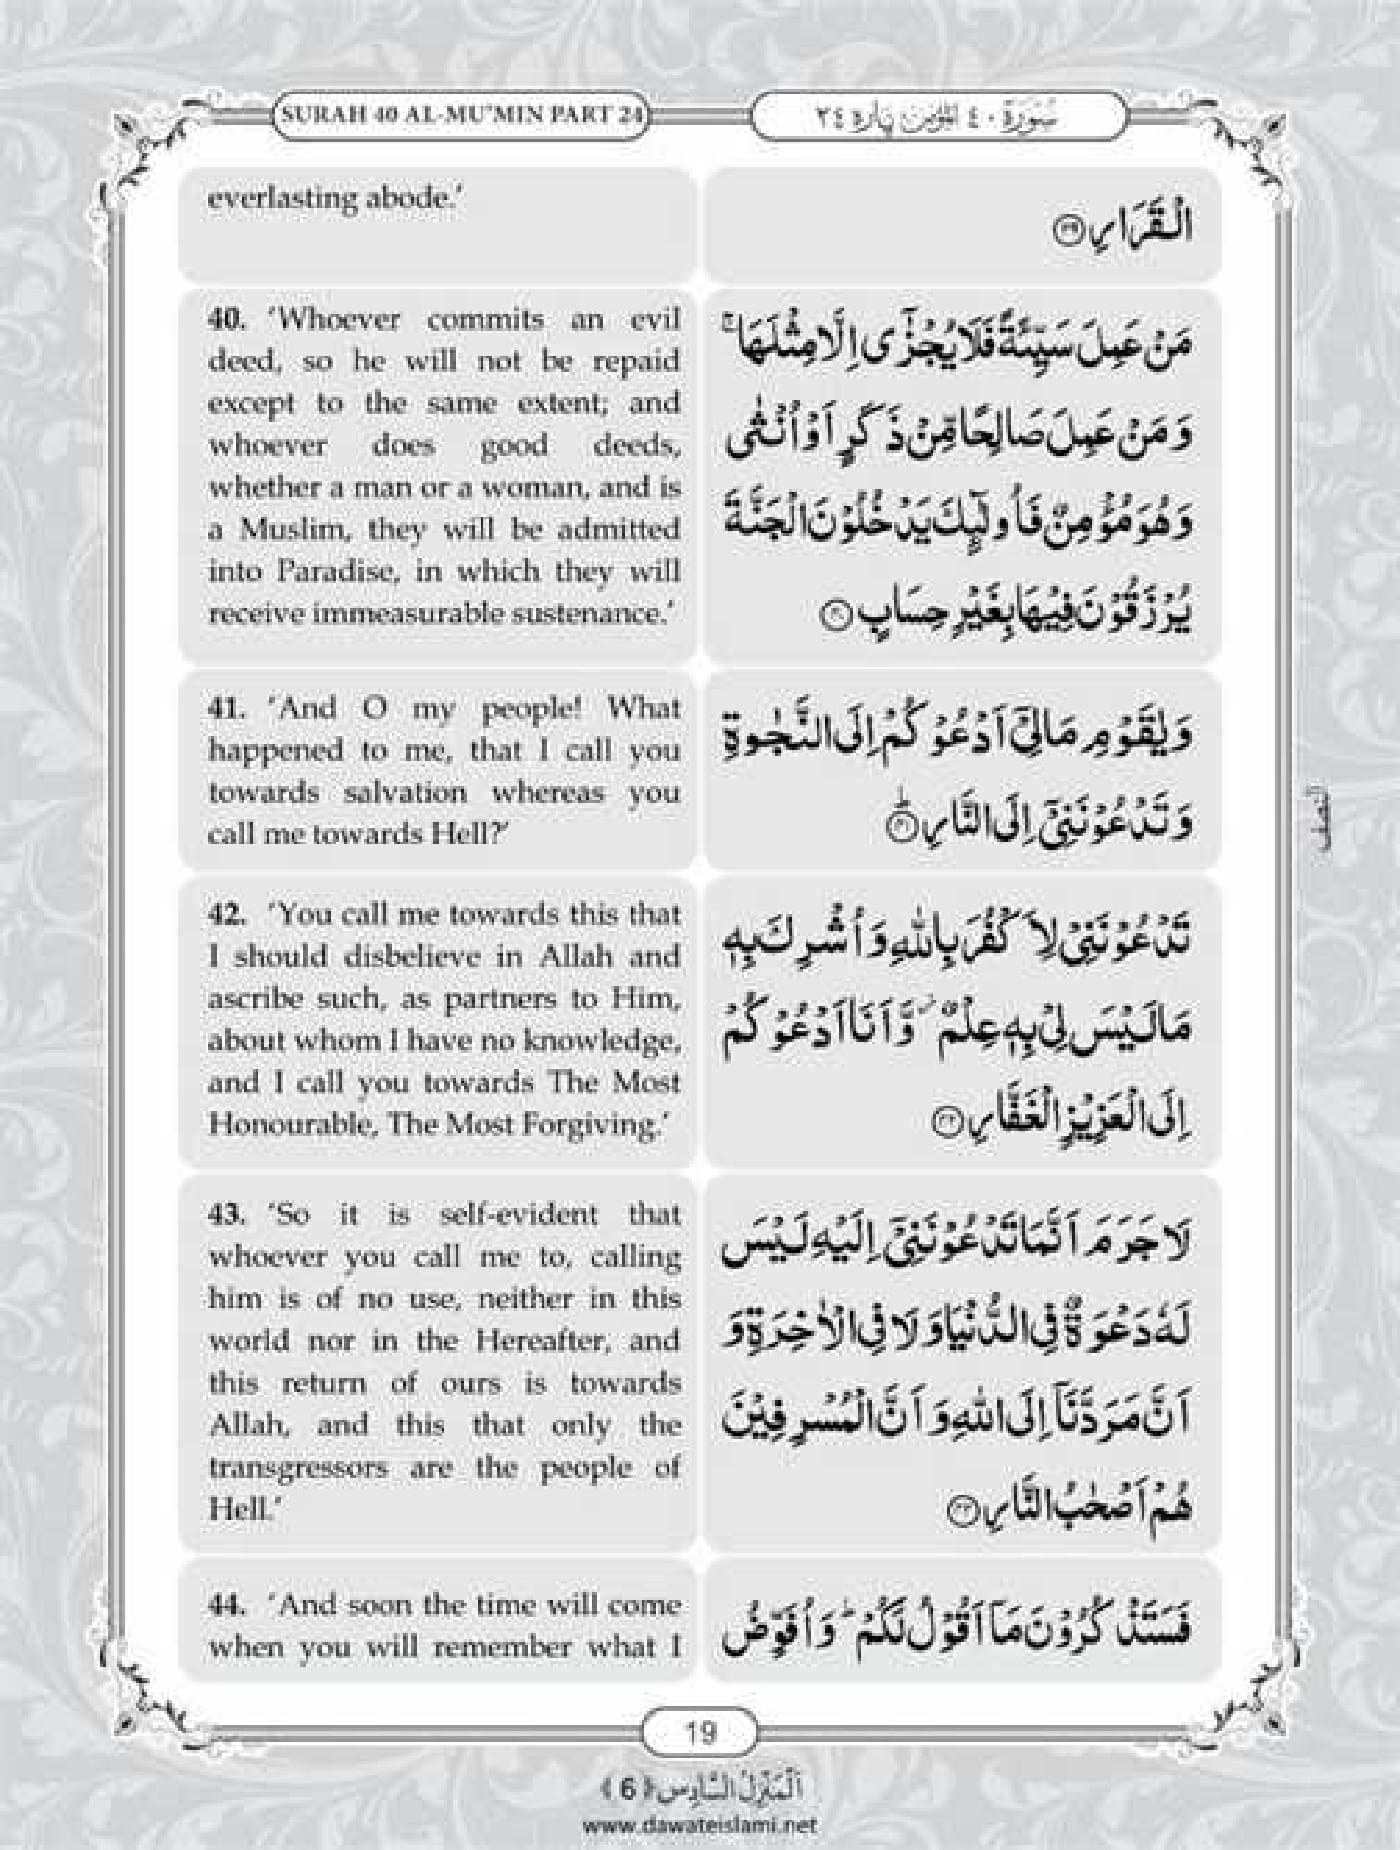 SURAH 40 AL-MU'MIN PART 24
سُوْرَةُ ٤٠ اَلْمُؤْمِن پَارہ ٢٤
everlasting abode.’
الْقَرَارِ ﴿٣٩﴾
40. ‘Whoever commits an evil
deed, so he will not be repaid
except to the same extent; and
whoever does good deeds,
whether a man or a woman, and is
a Muslim, they will be admitted
into Paradise, in which they will
receive immeasurable sustenance.’
مَنْ عَمِلَ سَيِّئَةً فَلَا يُجْزٰۤى اِلَّا مِثْلَهَا ۚ
وَ مَنْ عَمِلَ صَالِحًا مِّنْ ذَكَرٍ اَوْ اُنْثٰى
وَ هُوَ مُؤْمِنٌ فَاُولٰٓئِكَ يَدْخُلُوْنَ الْجَنَّةَ
يُرْزَقُوْنَ فِيْهَا بِغَيْرِ حِسَابٍ ﴿٤٠﴾
41. ‘And O my people! What
happened to me, that I call you
towards salvation whereas you
call me towards Hell?’
وَ يٰقَوْمِ مَا لِیْۤ اَدْعُوْكُمْ اِلَى النَّجٰوةِ
وَ تَدْعُوْنَنِیْۤ اِلَى النَّارِ ﴿٤١﴾ؕ
42. ‘You call me towards this that
I should disbelieve in Allah and
ascribe such, as partners to Him,
about whom I have no knowledge,
and I call you towards The Most
Honourable, The Most Forgiving.’
تَدْعُوْنَنِیْ لِاَكْفُرَ بِاللهِ وَ اُشْرِكَ بِهٖ
مَا لَيْسَ لِیْ بِهٖ عِلْمٌ ؗ وَّ اَنَا اَدْعُوْكُمْ
اِلَى الْعَزِيْزِ الْغَفَّارِ ﴿٤٢﴾
43. ‘So it is self-evident that
whoever you call me to, calling
him is of no use, neither in this
world nor in the Hereafter, and
this return of ours is towards
Allah, and this that only the
transgressors are the people of
Hell.’
لَا جَرَمَ اَنَّمَا تَدْعُوْنَنِیْۤ اِلَيْهِ لَيْسَ
لَهٗ دَعْوَةٌ فِی الدُّنْيَا وَ لَا فِی الْاٰخِرَةِ وَ
اَنَّ مَرَدَّنَاۤ اِلَى اللهِ وَ اَنَّ الْمُسْرِفِيْنَ
هُمْ اَصْحٰبُ النَّارِ ﴿٤٣﴾
44. ‘And soon the time will come
when you will remember what I
فَسَتَذْكُرُوْنَ مَاۤ اَقُوْلُ لَكُمْ ؕ وَ اُفَوِّضُ
النصف
19
اَلْمَنْزِلُ السَّادِس ﴿6﴾
www.dawateislami.net